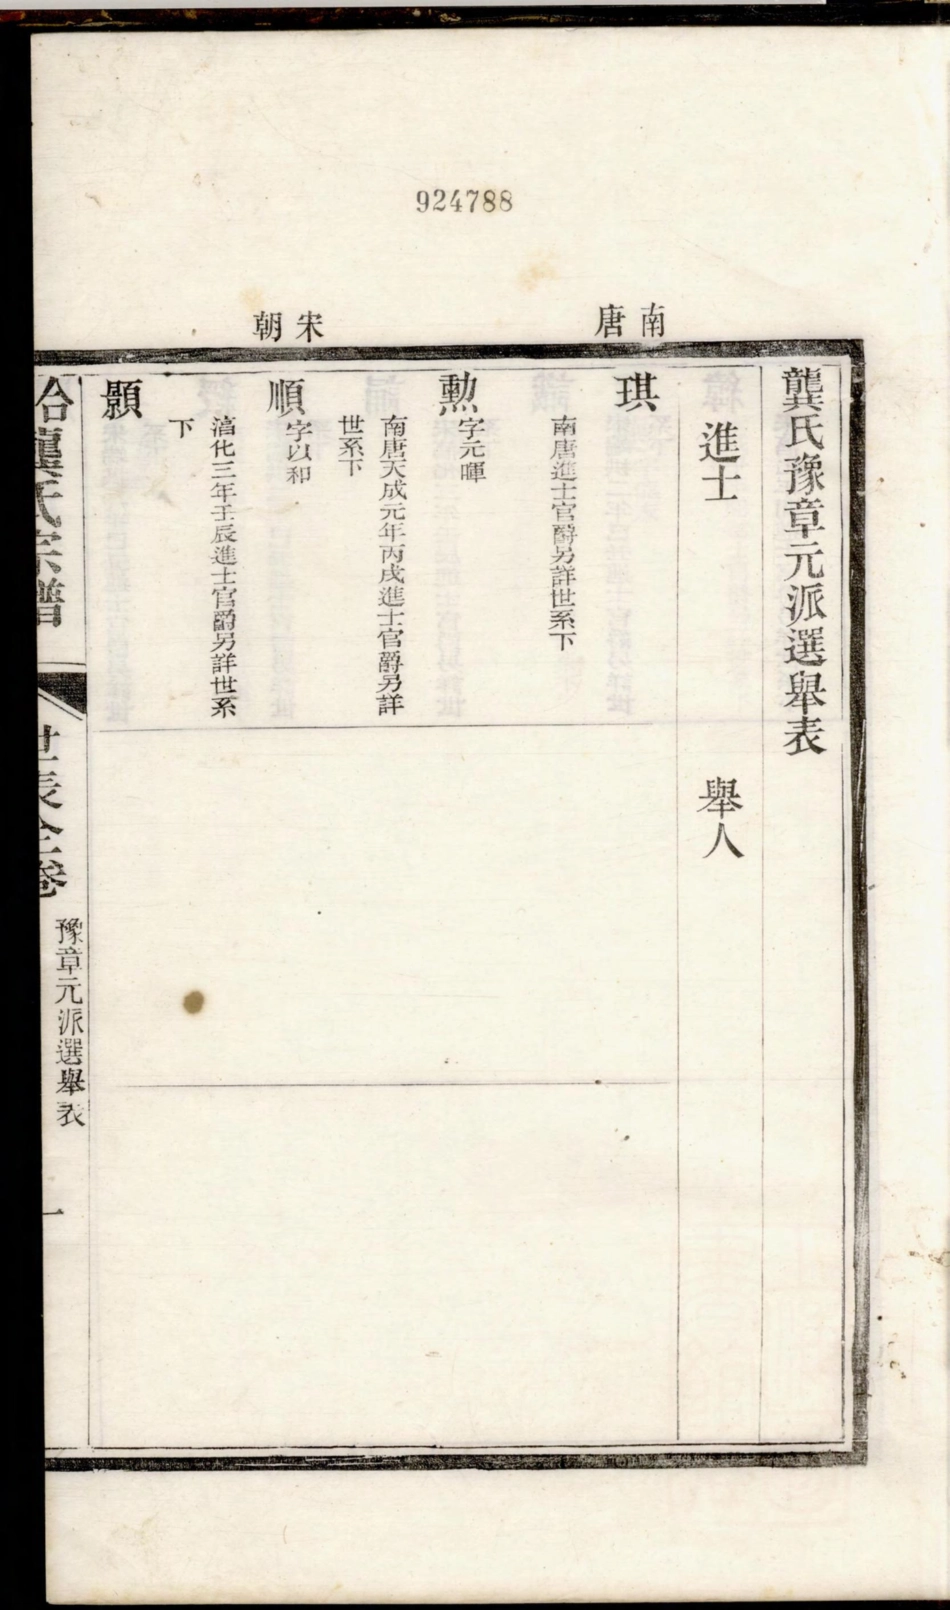 924788
南唐
宋朝
龔氏豫章元派選舉表
進士
舉人
琪
南唐進士官爵另詳世系下
勲
字元暉
南唐天成元年丙戌進士官爵另詳
世系下
順
字以和
滈化三年壬辰進士官爵另詳世系
下
顥
龔氏宗譜
世表全卷
豫章元派選舉表
一